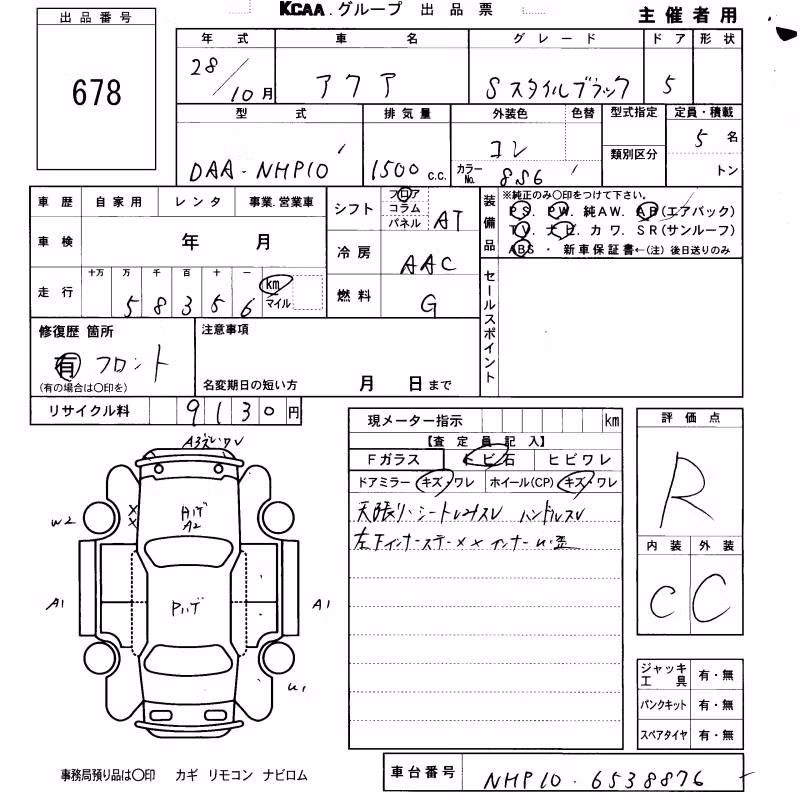 KCAA.グループ 出品票
主催者用
出品番号
678
年式 車名 グレード ドア 形状
28/10月 アクア Sスタイルブラック 5
型式 排気量 外装色 色替 型式指定 定員・積載
DAA-NHP10 1500 c.c. コン カラーNo. 856 類別区分 5名
トン
車歴 自家用 レンタ 事業.営業車
車検 年 月
走行 十万 万 千 百 十 一
58356 km マイル
シフト フロア コラム パネル AT
冷房 AAC
燃料 G
装備品 ※純正のみ○印をつけて下さい。
PS. PW. 純AW. AB(エアバック)
TV. ナビ. カワ. SR(サンルーフ)
ABS・新車保証書←(注)後日送りのみ
セールスポイント
修復歴 箇所
有 フロント
(有の場合は○印を)
注意事項
名変期日の短い方 月 日まで
リサイクル料 9130円
現メーター指示 km
【査定員記入】
Fガラス トビ石 ヒビワレ
ドアミラー キズ・ワレ ホイール(CP) キズ・ワレ
天張り・シート ハンドルスレ
左Fインナーステー××インナー
評価点
R
内装 外装
C C
ジャッキ工具 有・無
パンクキット 有・無
スペアタイヤ 有・無
A3
W2
××
Aハゲ
A2
A1
Pハゲ
A1
U1
事務局預り品は○印 カギ リモコン ナビロム
車台番号 NHP10-6538876